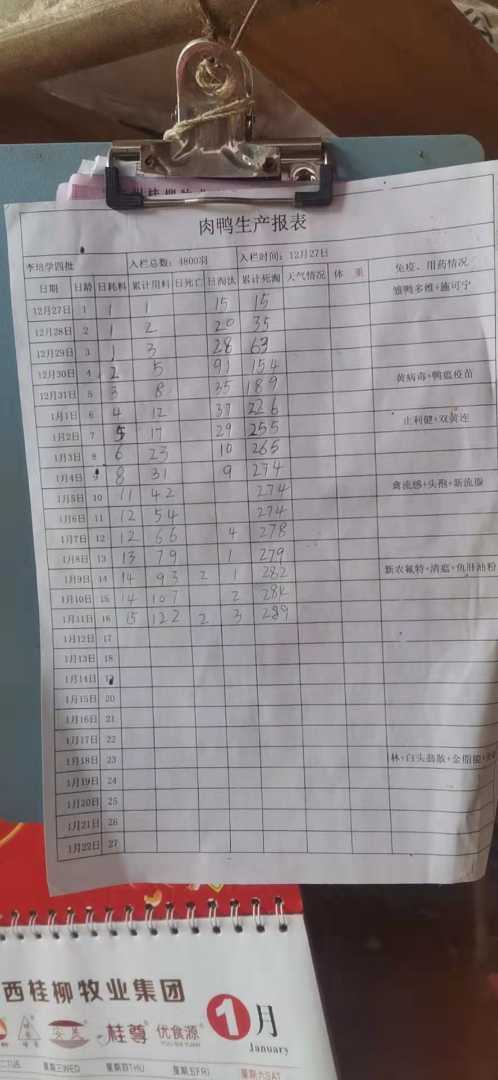 肉鸭生产报表
李培学四批 入栏总数：4800羽 入栏时间：12月27日
日期 日龄 日耗料 累计用料 日死亡 日淘汰 累计死淘 天气情况 体 重 免疫、用药情况
12月27日 1 1 1 15 15 雏鸭多维+施可宁
12月28日 2 1 2 20 35
12月29日 3 1 3 28 63
12月30日 4 2 5 91 154
12月31日 5 3 8 35 189 黄病毒+鸭瘟疫苗
1月1日 6 4 12 37 226
1月2日 7 5 17 29 255 止利健+双黄连
1月3日 8 6 23 10 265
1月4日 9 8 31 9 274
1月5日 10 11 42 274 禽流感+头孢+新流脑
1月6日 11 12 54 274
1月7日 12 12 66 4 278
1月8日 13 13 79 1 279
1月9日 14 14 93 2 1 282 新农氟特+清瘟+鱼肝油粉
1月10日 15 14 107 2 284
1月11日 16 15 122 2 3 289
1月12日 17
1月13日 18
1月14日 19
1月15日 20
1月16日 21
1月17日 22
1月18日 23 林+白头翁散+金脂
1月19日 24
1月20日 25
1月21日 26
1月22日 27
西桂柳牧业集团
1月
January
桂尊 优食源
星期三WED 星期四THU 星期五FRI 星期六SAT